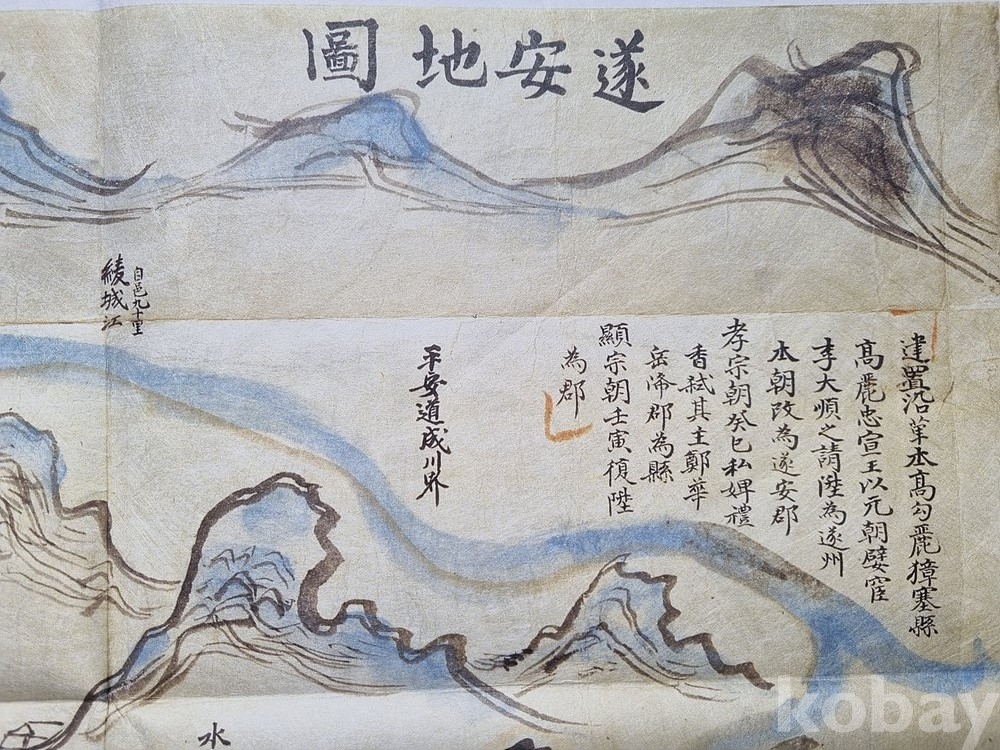 遂安地圖
建置沿革本高勾麗獐塞縣
高麗忠宣王以元朝嬖宦
李大順之請陞為遂州
本朝改為遂安郡
孝宗朝癸巳私婢禮
香弑其主鄭華
岳降郡為縣
顯宗朝壬寅復陞
為郡
平安道成川界
自邑九十里
綾城江
水
kobay